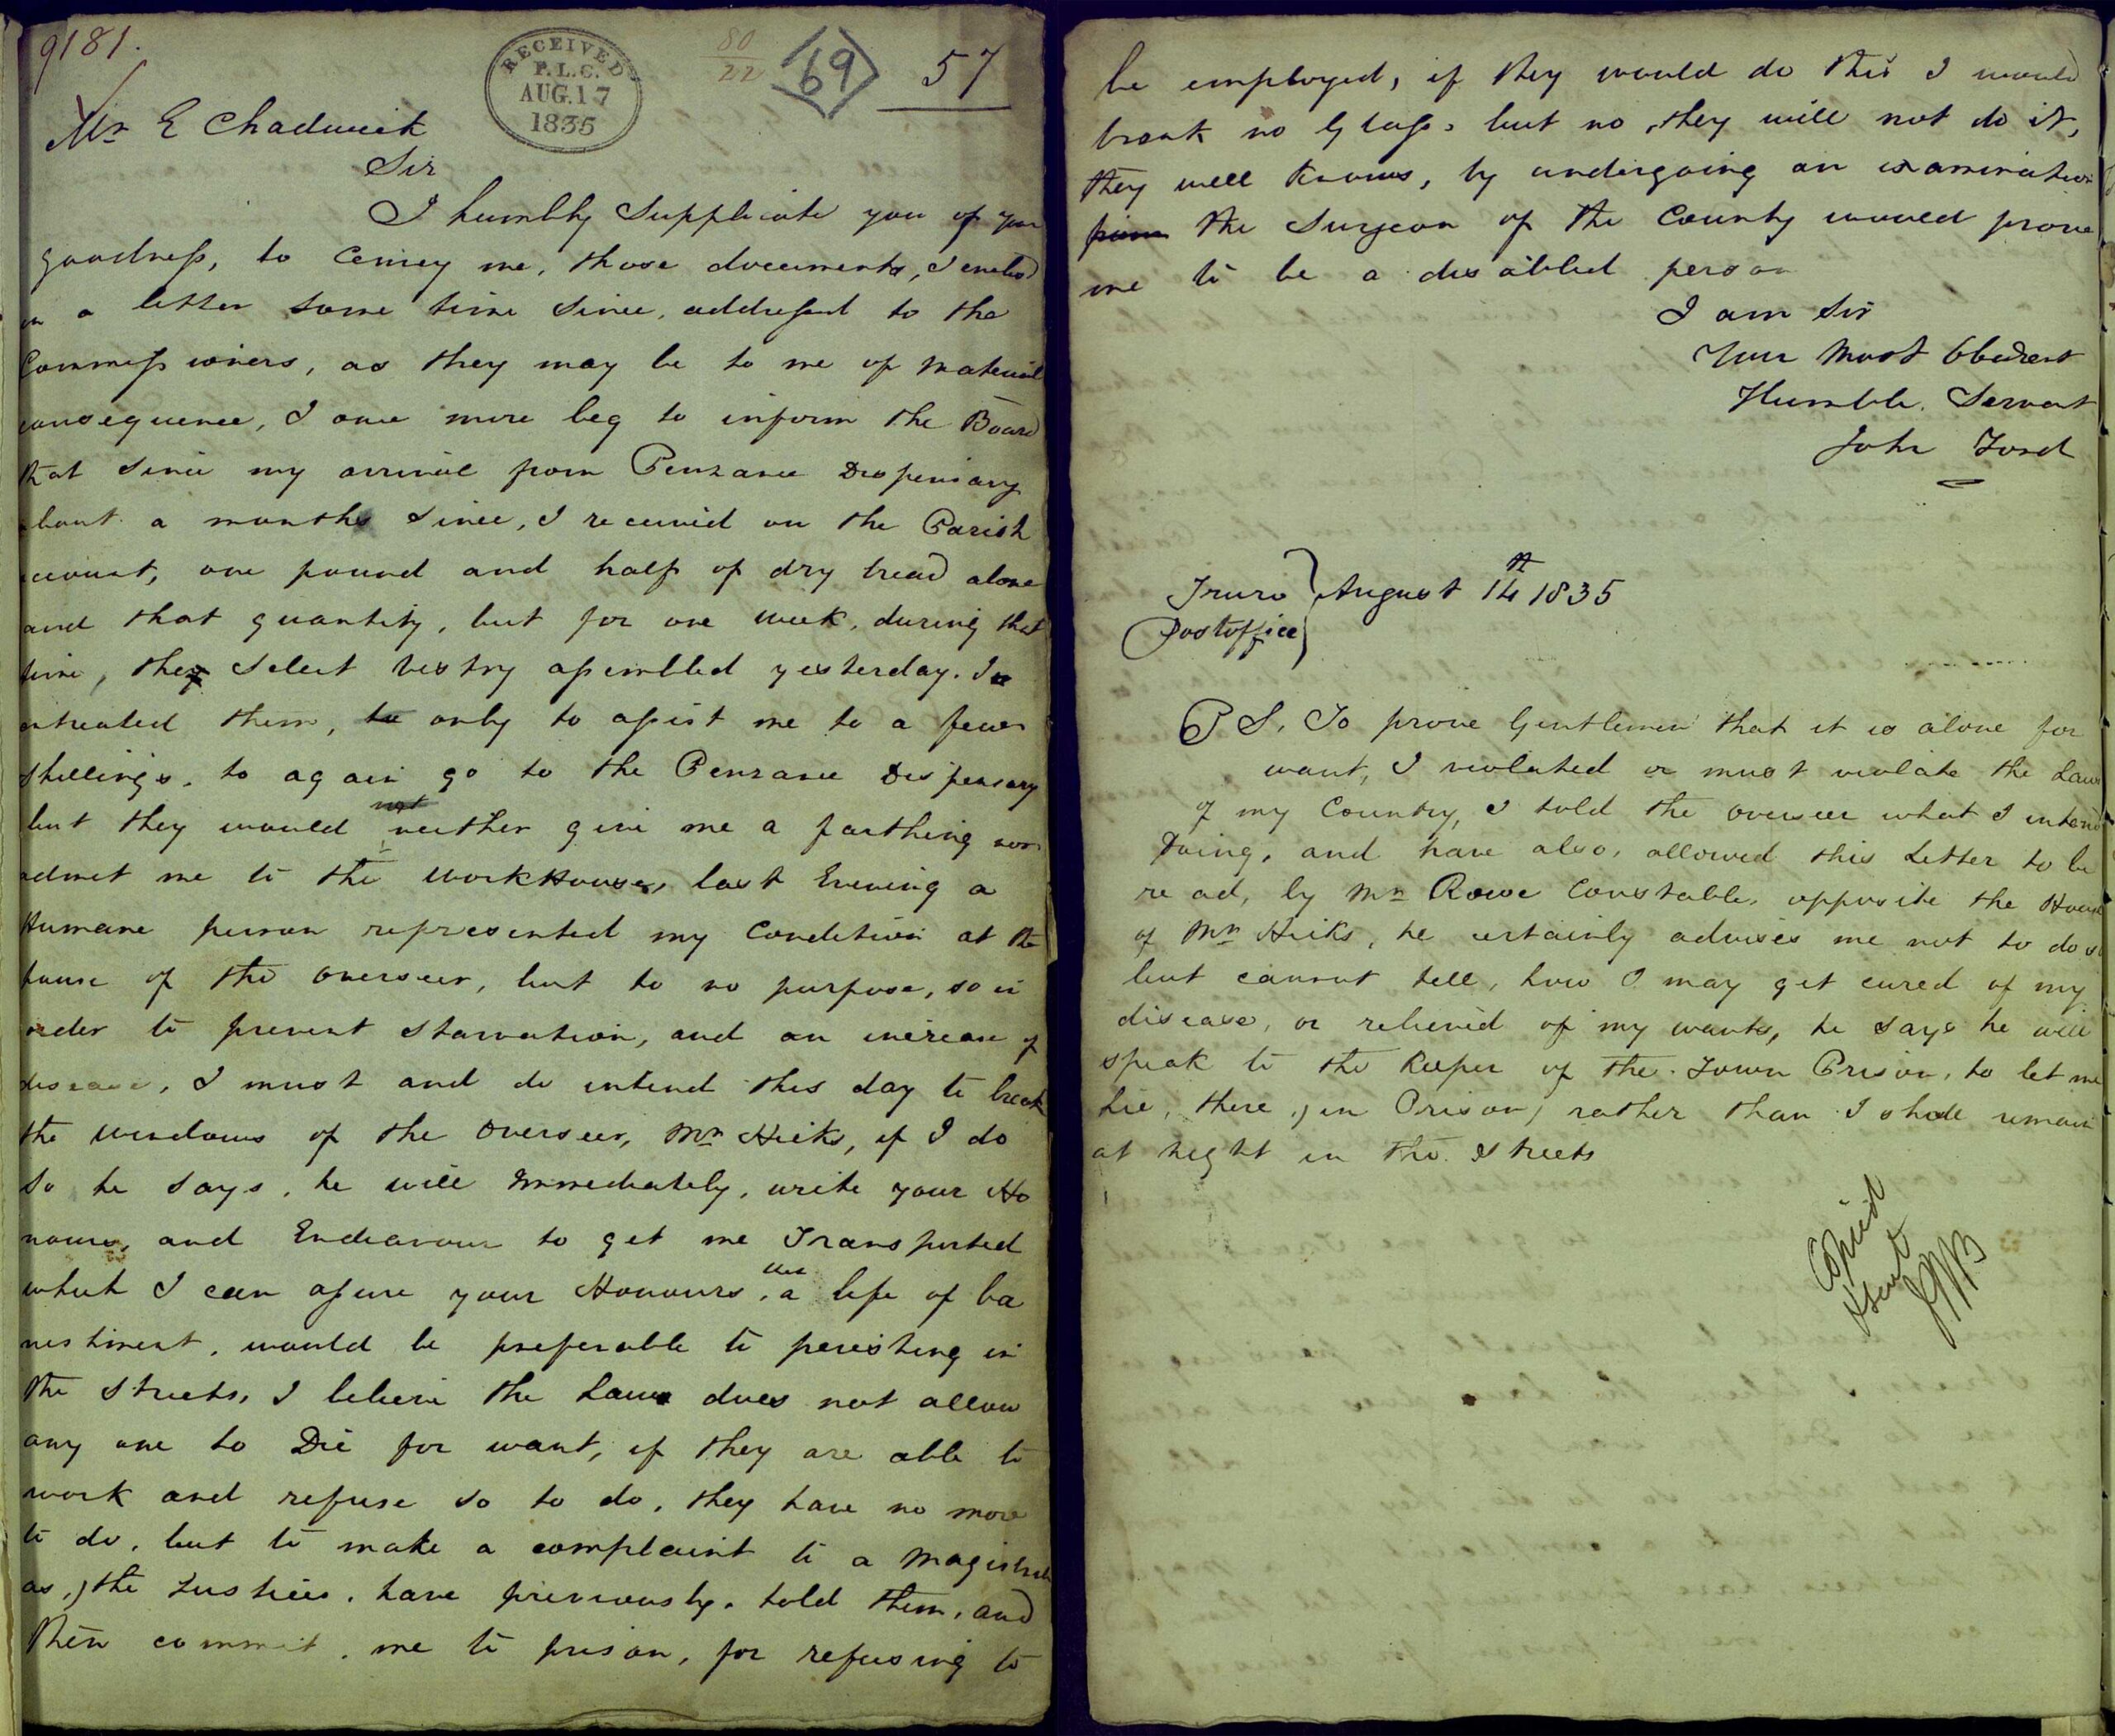 9181.
RECEIVED
P.L.C.
AUG.17
1835
80
22
69
57
Mr E Chadwick
Sir
I humbly Supplicate you of your
goodness, to Convey me, those documents, I enclosd
in a letter some time since, addressed to the
Commissioners, as they may be to me of material
consequence, I once more beg to inform the Board
that since my arrival from Penzance Dispensary
about a months since, I received on the Parish
account, one pound and half of dry bread alone
and that quantity, but for one week, during that
time, they select vestry assembled yesterday. I
entreated them, to only to assist me to a few
shillings. to again go to the Penzance Dispensary
not
but they would neither give me a farthing nor
admit me to the WorkHouse, last Evening a
Humane person represented my Condition at the
house of the overseer, but to no purpose, so in
order to prevent starvation, and an increase of
disease, I must and do intend this day to break
the windows of the Overseer, Mr Hicks, if I do
so he says, he will Immediately, write your Ho
nours, and Endeavour to get me Transported
which I can assure your Honours, a life of ba
nishment, would be preferable to perishing in
the streets, I believe the Laws does not allow
any one to Die for want, if they are able to
work and refuse so to do, they have no more
to do, but to make a complaint to a Magistrate
as,) the Justices, have previously, told them, and
then commit, me to prison, for refusing to
be employed, if they would do this I would
break no Glass, but no, they will not do it,
they well knows, by undergoing an examination
from the Surgeon of the County would prove
me to be a disabled person
I am Sir
Your Most Obedient
Humble. Servant
John Ford
Truro } August 14th 1835
Postoffice
PS. To prove Gentlemen that it is alone for
want, I violated or must violate the Laws
of my Country, I told the overseer what I intend
Doing, and have also, allowed this Letter to be
read, by Mr Rowe Constable, opposite the House
of Mr Hicks, he certainly advises me not to do so
but cannot tell, how I may get cured of my
disease, or relieved of my wants, he says he will
speak to the Keeper of the Town Prison, to let me
Lie, there,) in Prison) rather than I shall remain
at night in the streets
Copied